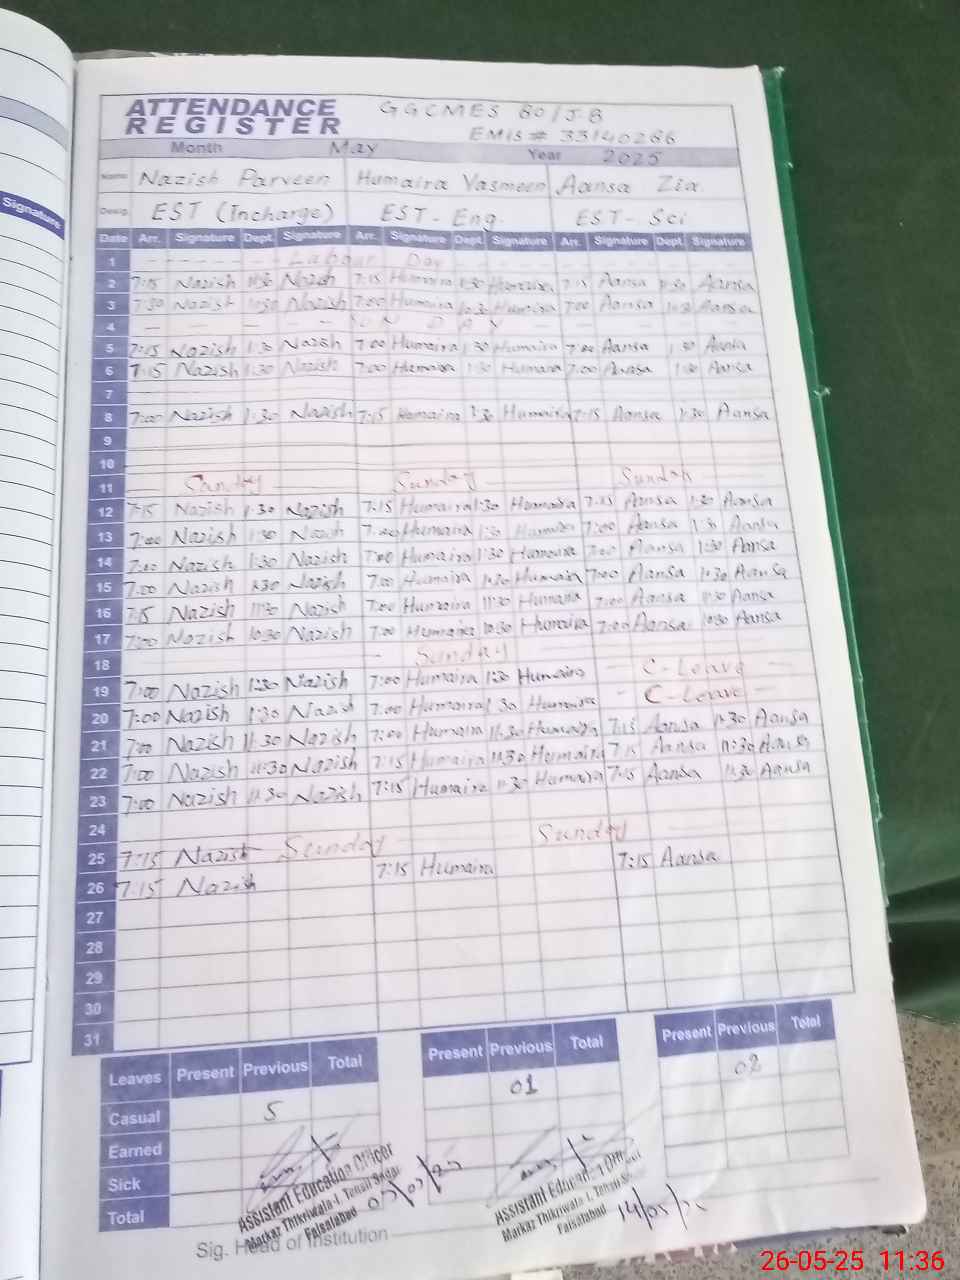 Signature
ATTENDANCE REGISTER GGCMES 80/J-B
EMIS# 33140266
Month May Year 2025
Name Nazish Parveen Humaira Yasmeen Aansa Zia
Desig. EST (Incharge) EST-Eng. EST-Sci
Date Arr. Signature Dept. Signature Arr. Signature Dept. Signature Arr. Signature Dept. Signature
1 Labour Day
2 7:15 Nazish Nazish 7:15 Humaira Humaira 7:15 Aansa Aansa
3 7:30 Nazish Nazish 7:00 Humaira 10:30 Humaira 7:00 Aansa Aansa
4
5 7:15 Nazish 1:30 Nazish 7:00 Humaira 1:30 Humaira 7:00 Aansa 1:30 Aansa
6 7:15 Nazish 1:30 Nazish 7:00 Humaira 1:30 Humaira 7:00 Aansa 1:30 Aansa
7
8 7:00 Nazish 1:30 Nazish 7:15 Humaira 1:30 Humaira 7:15 Aansa 1:30 Aansa
9
10
11 Sunday Sunday Sunday
12 7:15 Nazish 1:30 Nazish 7:15 Humaira 1:30 Humaira 7:15 Aansa 1:30 Aansa
13 7:00 Nazish 1:30 Nazish 7:00 Humaira 1:30 Humaira 7:00 Aansa 1:30 Aansa
14 7:00 Nazish 1:30 Nazish 7:00 Humaira 1:30 Humaira 7:00 Aansa 1:30 Aansa
15 7:00 Nazish Nazish 7:00 Humaira Humaira 7:00 Aansa Aansa
16 7:15 Nazish 11:30 Nazish 7:00 Humaira 11:30 Humaira 7:00 Aansa 11:30 Aansa
17 7:00 Nazish 10:30 Nazish 7:00 Humaira 10:30 Humaira 7:00 Aansa 10:30 Aansa
18 Sunday
19 7:00 Nazish 1:30 Nazish 7:00 Humaira 1:30 Humaira C-Leave
20 7:00 Nazish 1:30 Nazish 7:00 Humaira 1:30 Humaira C-Leave
21 7:00 Nazish 11:30 Nazish 7:00 Humaira 11:30 Humaira 7:15 Aansa 11:30 Aansa
22 7:00 Nazish 11:30 Nazish 7:15 Humaira 11:30 Humaira 7:15 Aansa 11:30 Aansa
23 7:00 Nazish 11:30 Nazish 7:15 Humaira 11:30 Humaira 7:15 Aansa 11:30 Aansa
24
25 7:15 Nazish Sunday Sunday
26 7:15 Nazish 7:15 Humaira 7:15 Aansa
27
28
29
30
31
Leaves Present Previous Total Present Previous Total Present Previous Total
Casual 5 01 02
Earned
Sick
Total
Assistant Education Officer
Markaz Thikriwala-I, Tehsil Sadar
Faisalabad
Assistant Education Officer
Markaz Thikriwala-I, Tehsil
Faisalabad
14/05/
Sig. Head of Institution
26-05-25 11:36